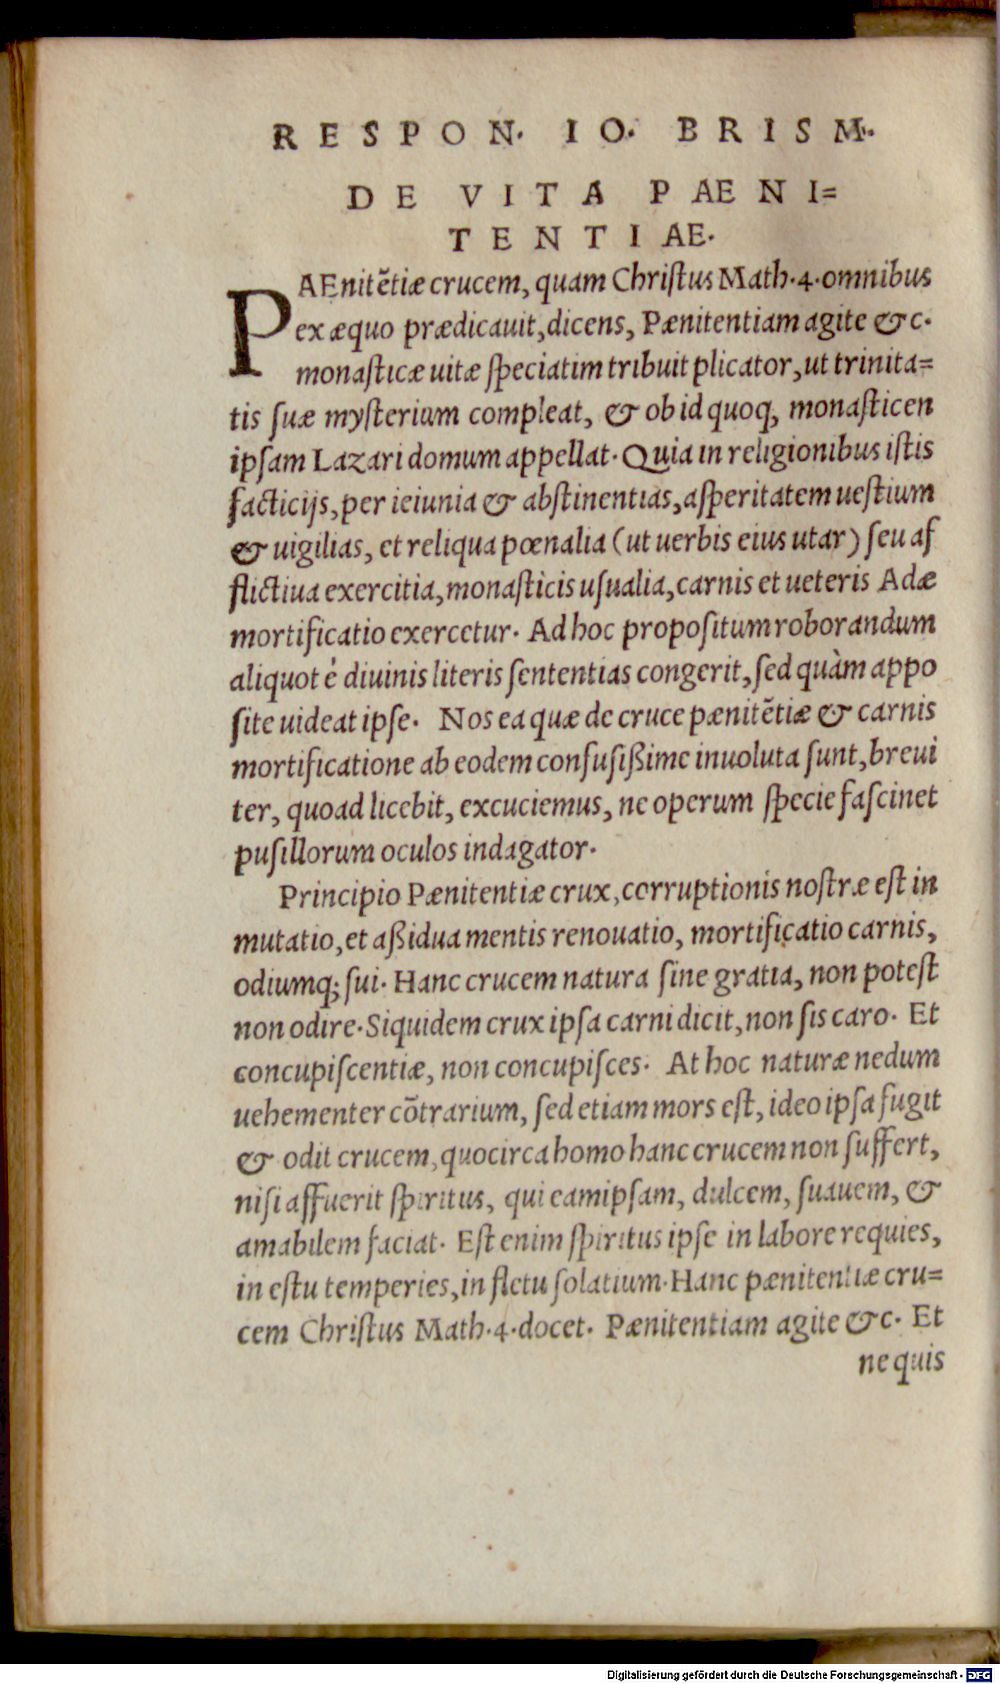 RESPON. IO. BRISM.
DE VITA PAENI=
TENTIAE.
PAEnitẽtiæ crucem, quam Chriſtus Math.4.omnibus
ex æquo prædicauit,dicens, Pænitentiam agite &c.
monaſticæ uitæ ſpeciatim tribuit plicator,ut trinita=
tis ſuæ myſterium compleat, & ob id quoq; monaſticen
ipſam Lazari domum appellat. Quia in religionibus iſtis
facticijs,per ieiunia & abſtinentias,aſperitatem ueſtium
& uigilias, et reliqua pœnalia (ut uerbis eius utar) ſeu af
flictiua exercitia,monaſticis uſualia,carnis et ueteris Adæ
mortificatio exercetur. Ad hoc propoſitum roborandum
aliquot è diuinis literis ſententias congerit,ſed quàm appo
ſite uideat ipſe. Nos ea quæ de cruce pænitẽtiæ & carnis
mortificatione ab eodem confuſißime inuoluta ſunt,breui
ter, quoad licebit, excuciemus, ne operum ſpecie faſcinet
puſillorum oculos indagator.
Principio Pænitentiæ crux,corruptionis noſtræ eſt in
mutatio,et aßidua mentis renouatio, mortificatio carnis,
odiumq; ſui. Hanc crucem natura ſine gratia, non poteſt
non odire.Siquidem crux ipſa carni dicit,non ſis caro. Et
concupiſcentiæ, non concupiſces. At hoc naturæ nedum
uehementer cõtrarium, ſed etiam mors eſt, ideo ipſa fugit
& odit crucem,quocirca homo hanc crucem non ſuffert,
niſi affuerit ſpiritus, qui eamipſam, dulcem, ſuauem, &
amabilem faciat. Eſt enim ſpiritus ipſe in labore requies,
in eſtu temperies,in fletu ſolatium.Hanc pænitentiæ cru=
cem Chriſtus Math.4.docet. Pænitentiam agite &c. Et
ne quis
Digitalisierung gefördert durch die Deutsche Forschungsgemeinschaft - DFG